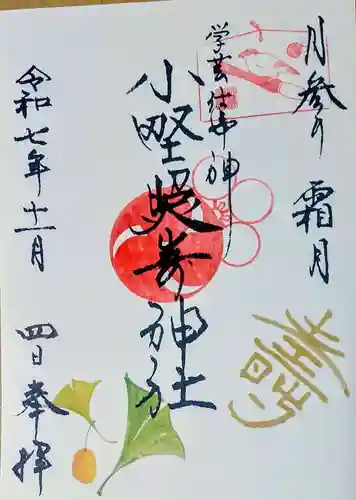 月参り 霜月
学芸仕事神
小野照崎神社
令和七年十一月 四日 奉拝